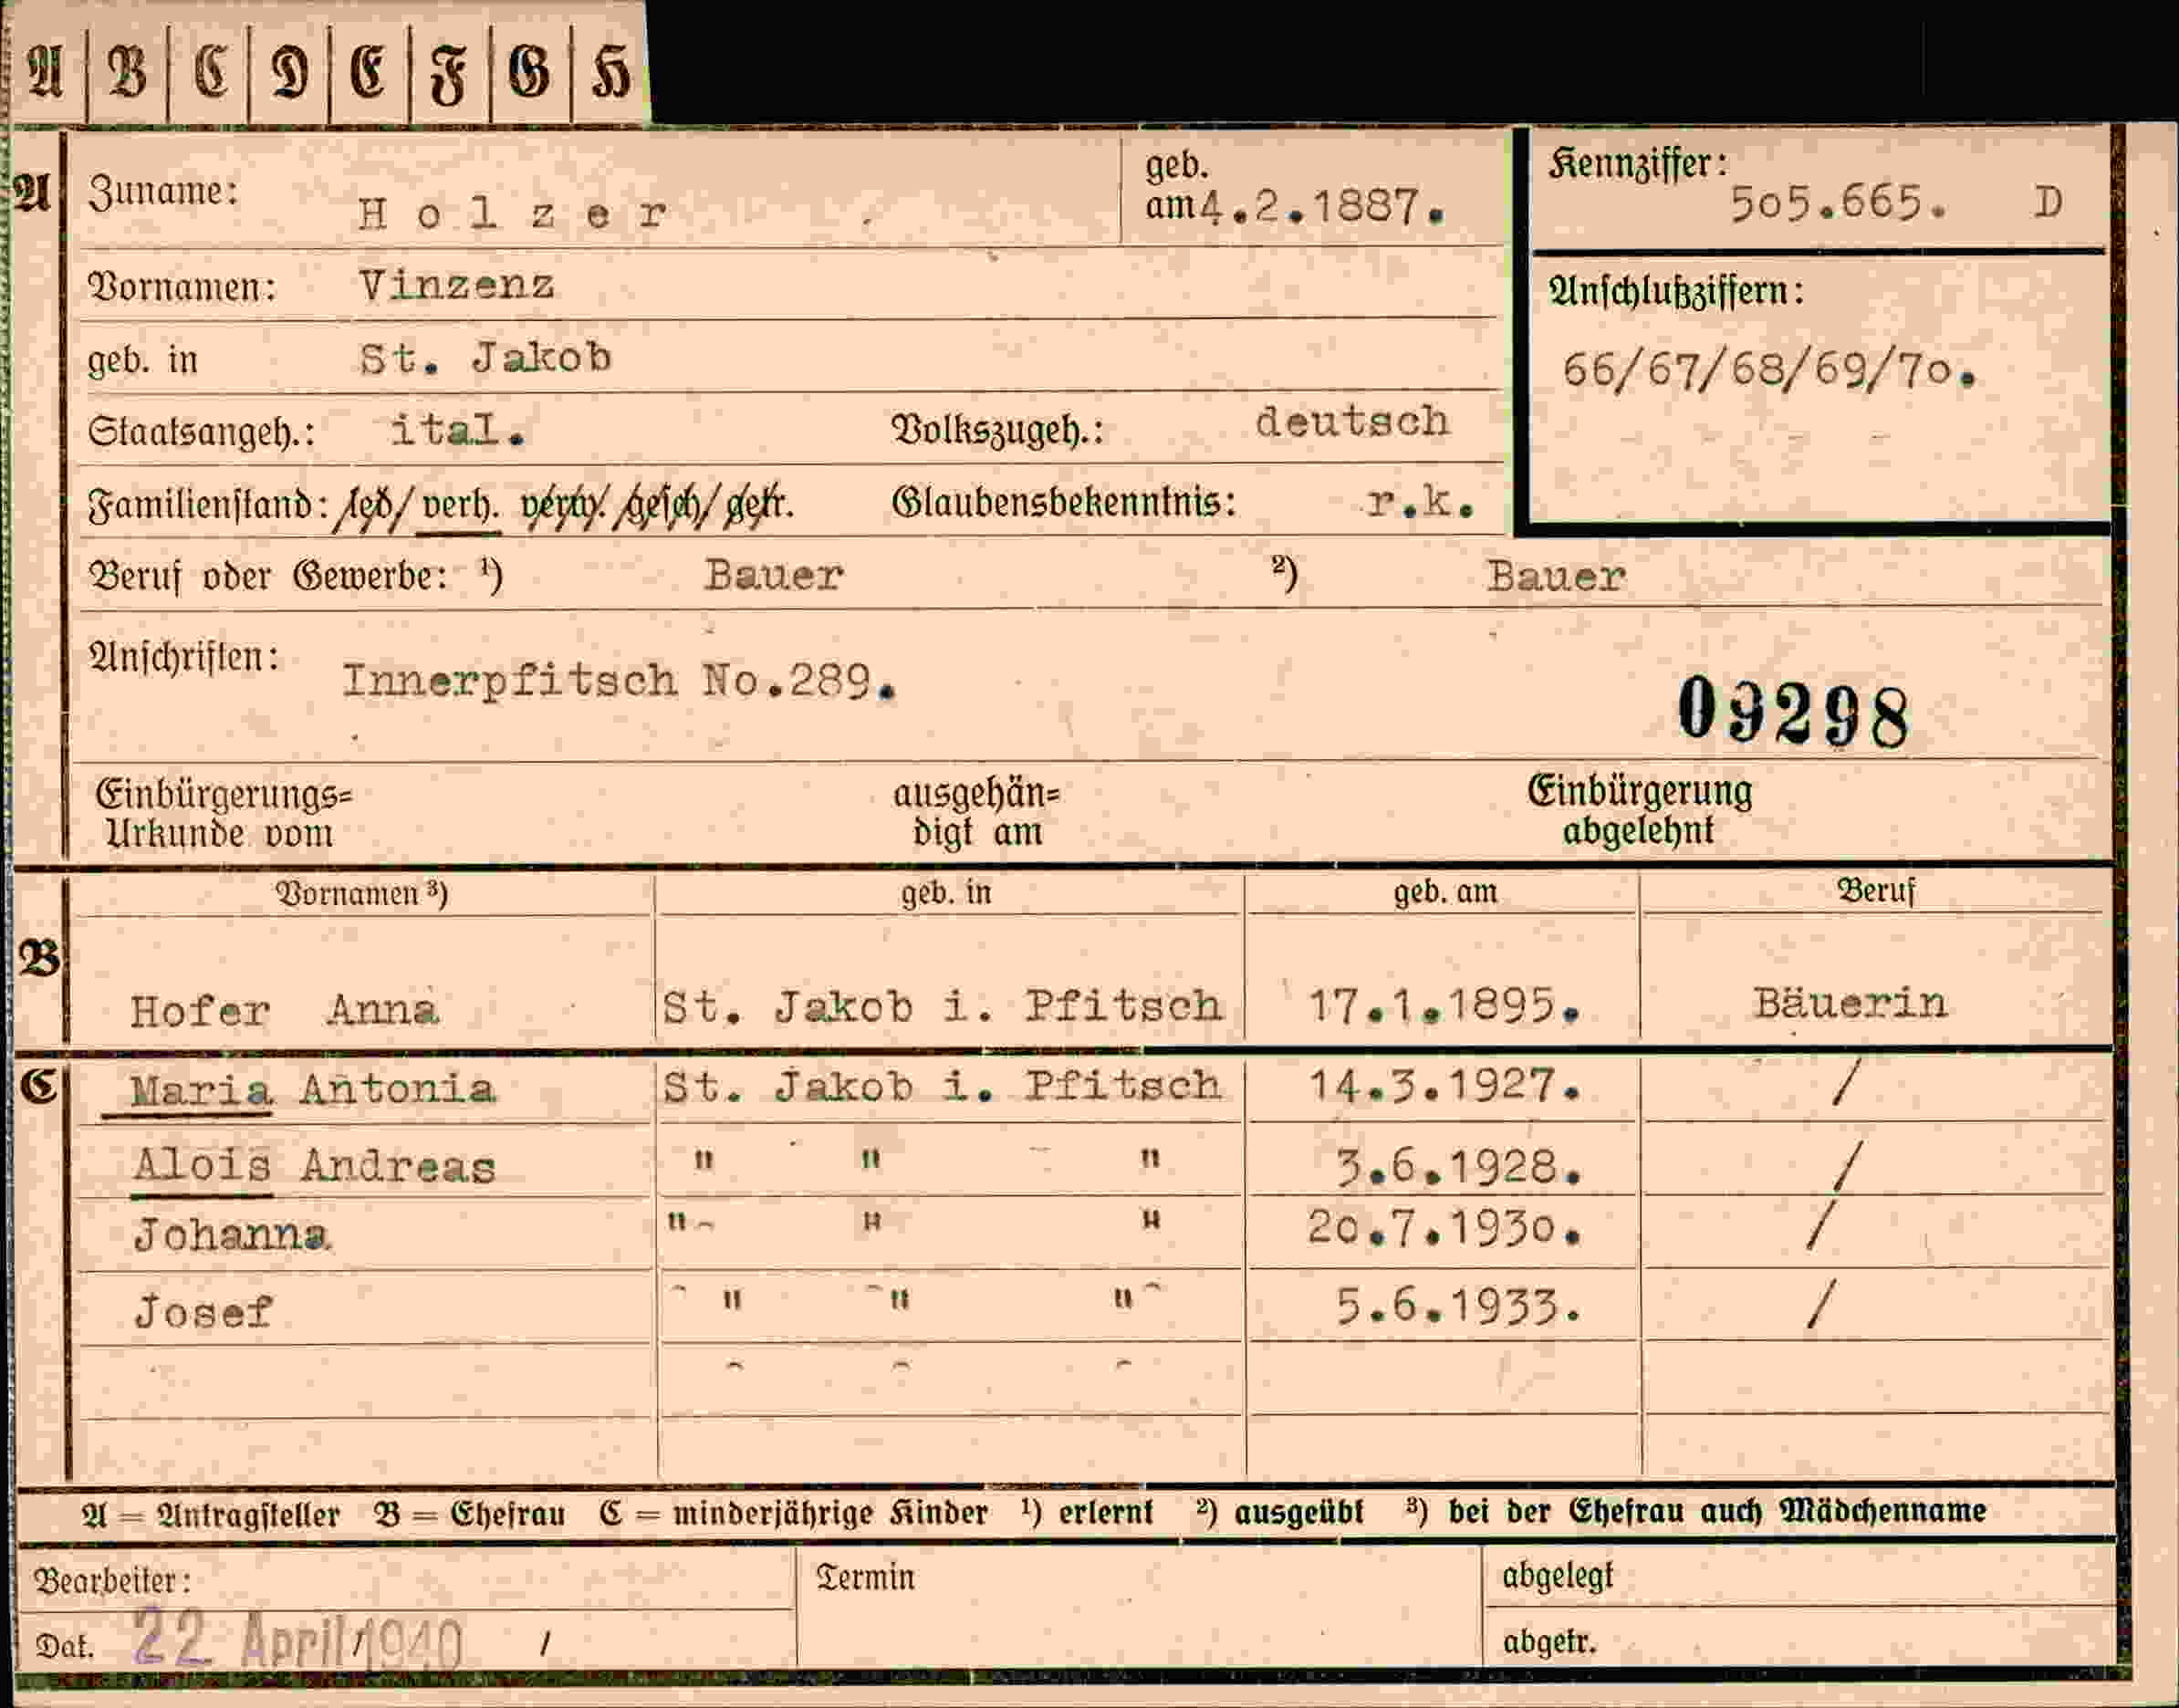 A B C D E F G H
A Zuname: Holzer geb. am 4.2.1887. Kennziffer: 505.665. D
Vornamen: Vinzenz Anschlußziffern:
geb. in St. Jakob 66/67/68/69/70.
Staatsangeh.: ital. Volkszugeh.: deutsch
Familienstand: led/ verh. verw. gesch/ getr. Glaubensbekenntnis: r.k.
Beruf oder Gewerbe: ¹) Bauer ²) Bauer
Anschriften: Innerpfitsch No.289.
09298
Einbürgerungs= ausgehän= Einbürgerung
Urkunde vom digt am abgelehnt
Vornamen ³) geb. in geb. am Beruf
B Hofer Anna St. Jakob i. Pfitsch 17.1.1895. Bäuerin
C Maria Antonia St. Jakob i. Pfitsch 14.3.1927. /
Alois Andreas " " " 3.6.1928. /
Johanna " " " 20.7.1930. /
Josef " " " 5.6.1933. /
A = Antragsteller B = Ehefrau C = minderjährige Kinder ¹) erlernt ²) ausgeübt ³) bei der Ehefrau auch Mädchenname
Bearbeiter: Termin abgelegt
Dat. 22. April 1940 / abgetr.